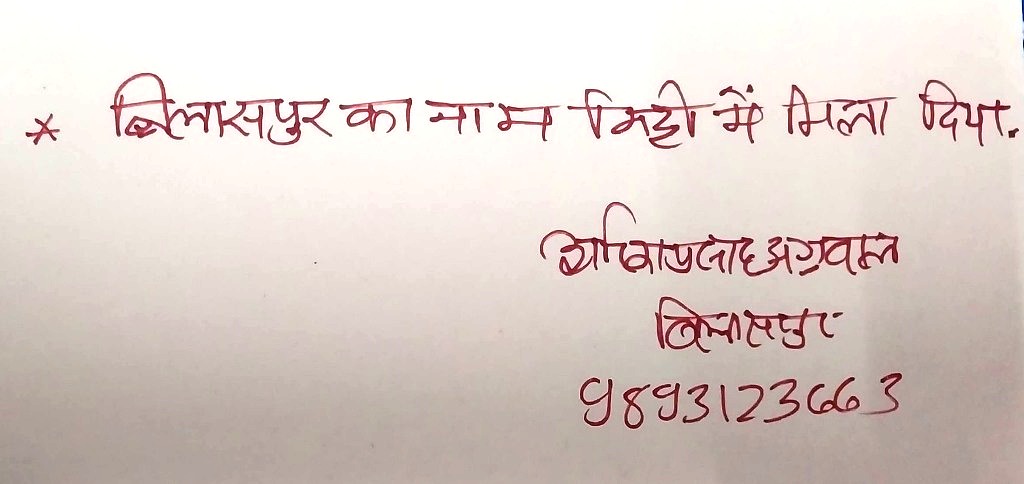 * बिलासपुर का नाम मिट्टी में मिला दिया.
अग्रवाल
बिलासपुर
9893123663